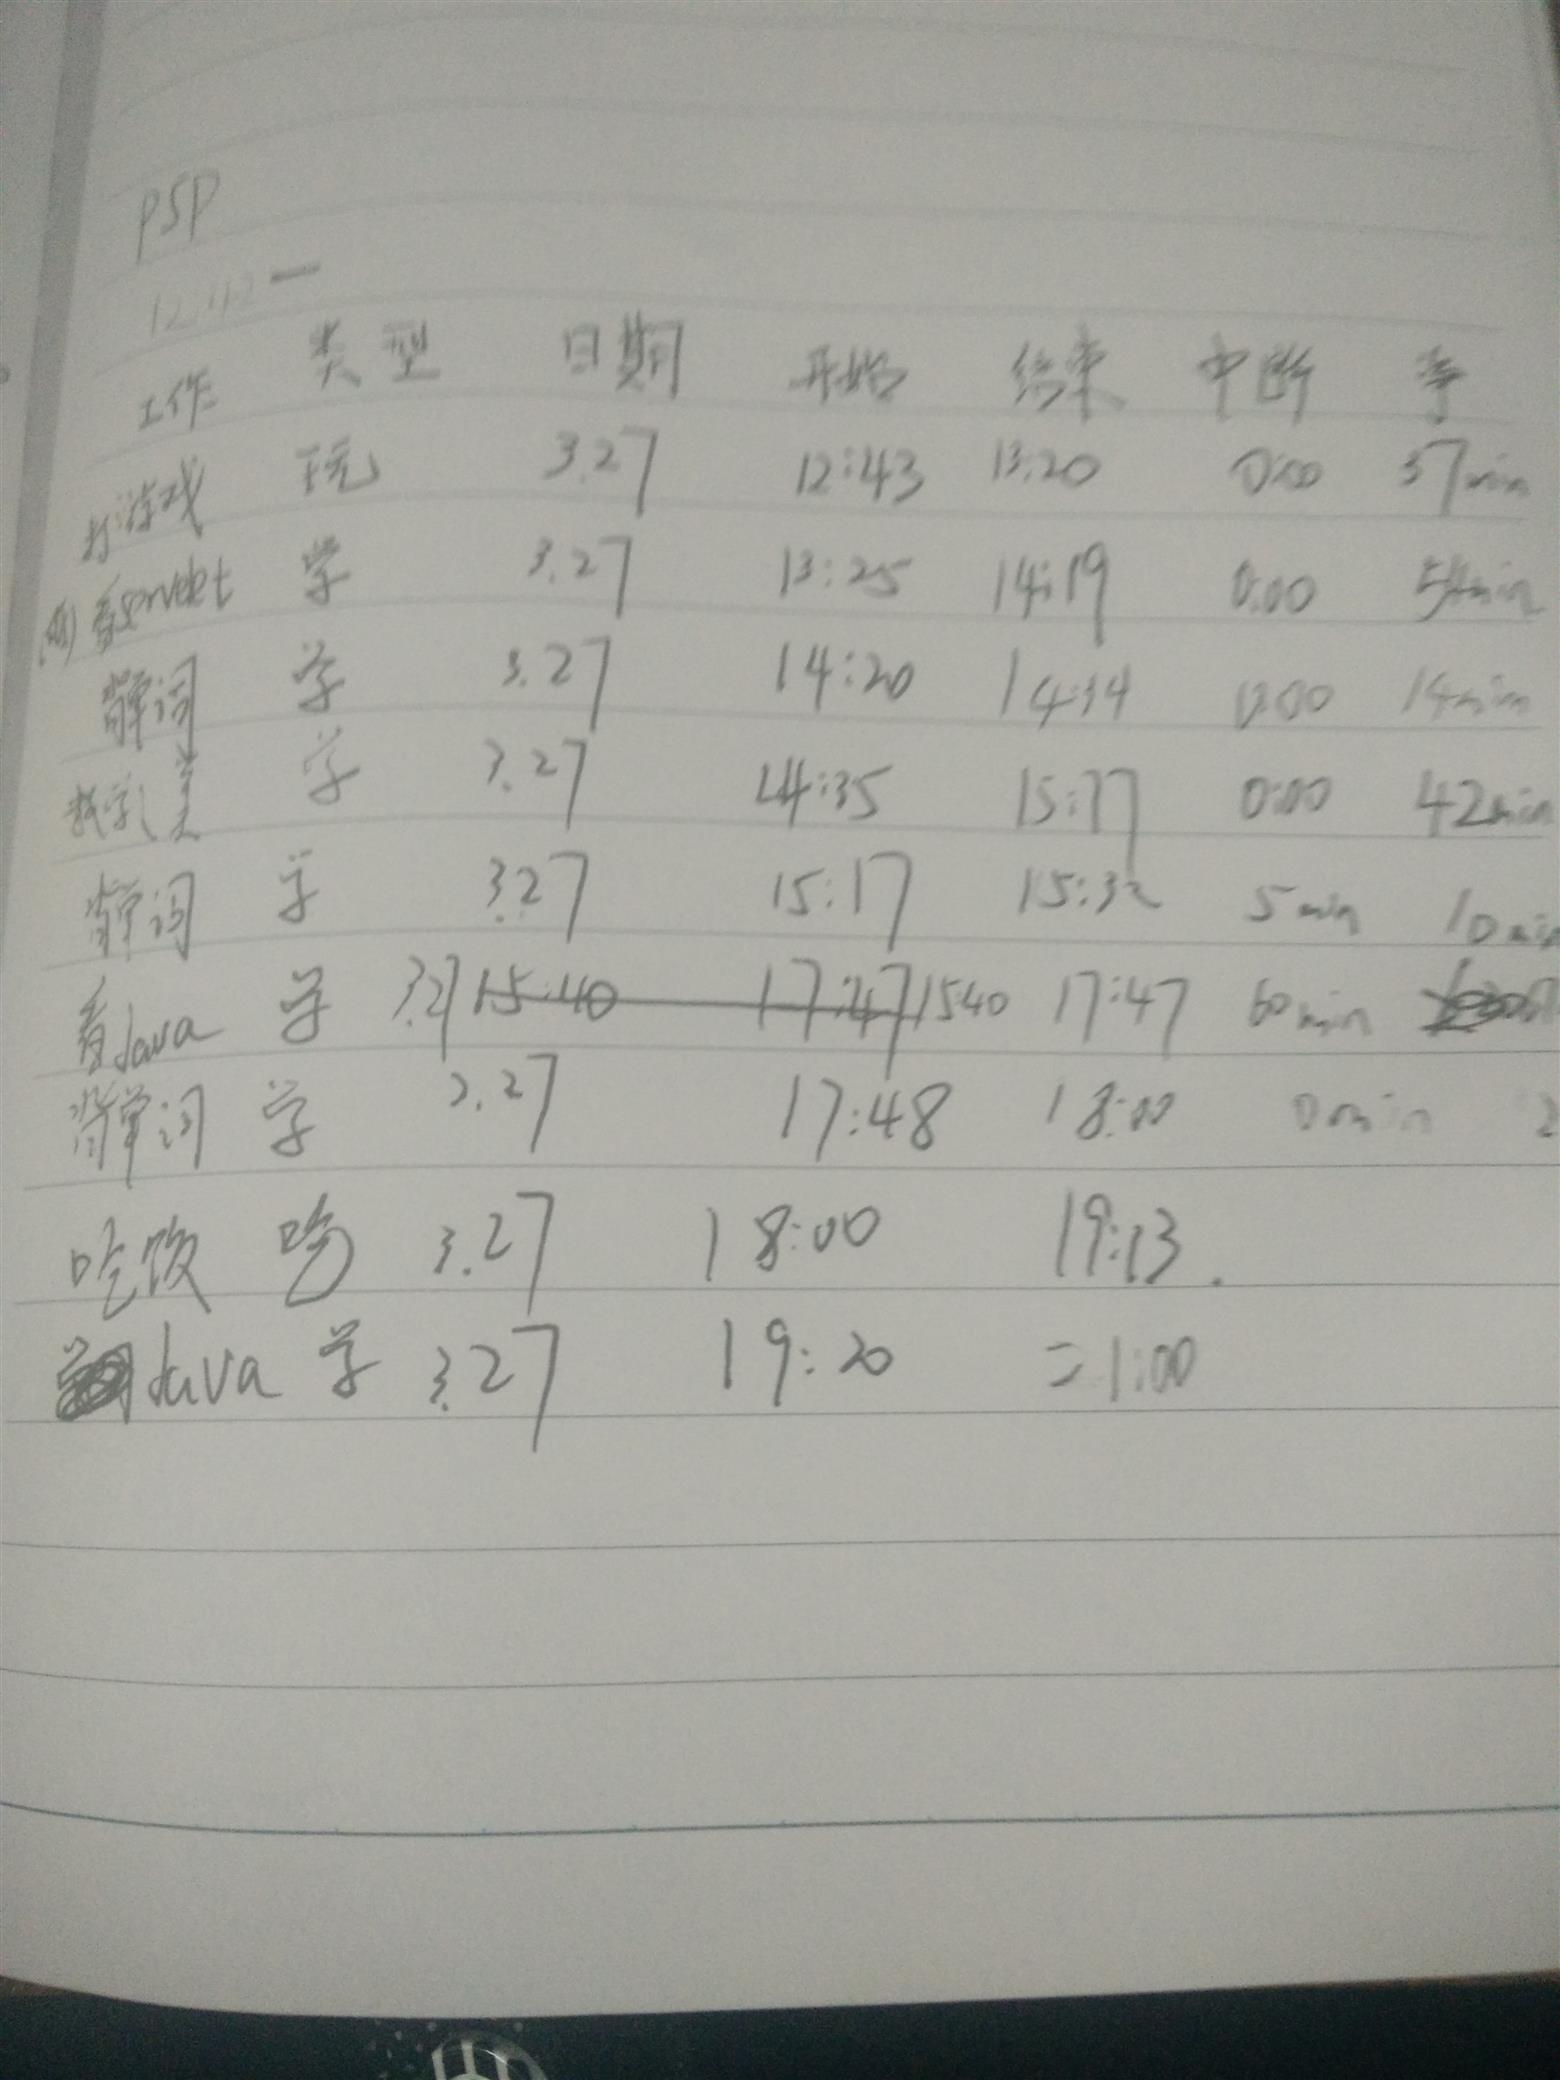 PSP
工作 类型 日期 开始 结束 中断 净
打游戏 玩 3.27 12:43 13:20 0:00 37min
看servlet 学 3.27 13:25 14:19 0:00 54min
背单词 学 3.27 14:20 14:34 0:00 14min
数学之美 学 3.27 14:35 15:17 0:00 42min
背单词 学 3.27 15:17 15:32 5min 10min
看Java 学 3.27 15:40 17:47 15:40 17:47 60min
背单词 学 3.27 17:48 18:00 0min
吃饭 吃 3.27 18:00 19:13.
Java 学 3.27 19:20 =1:00